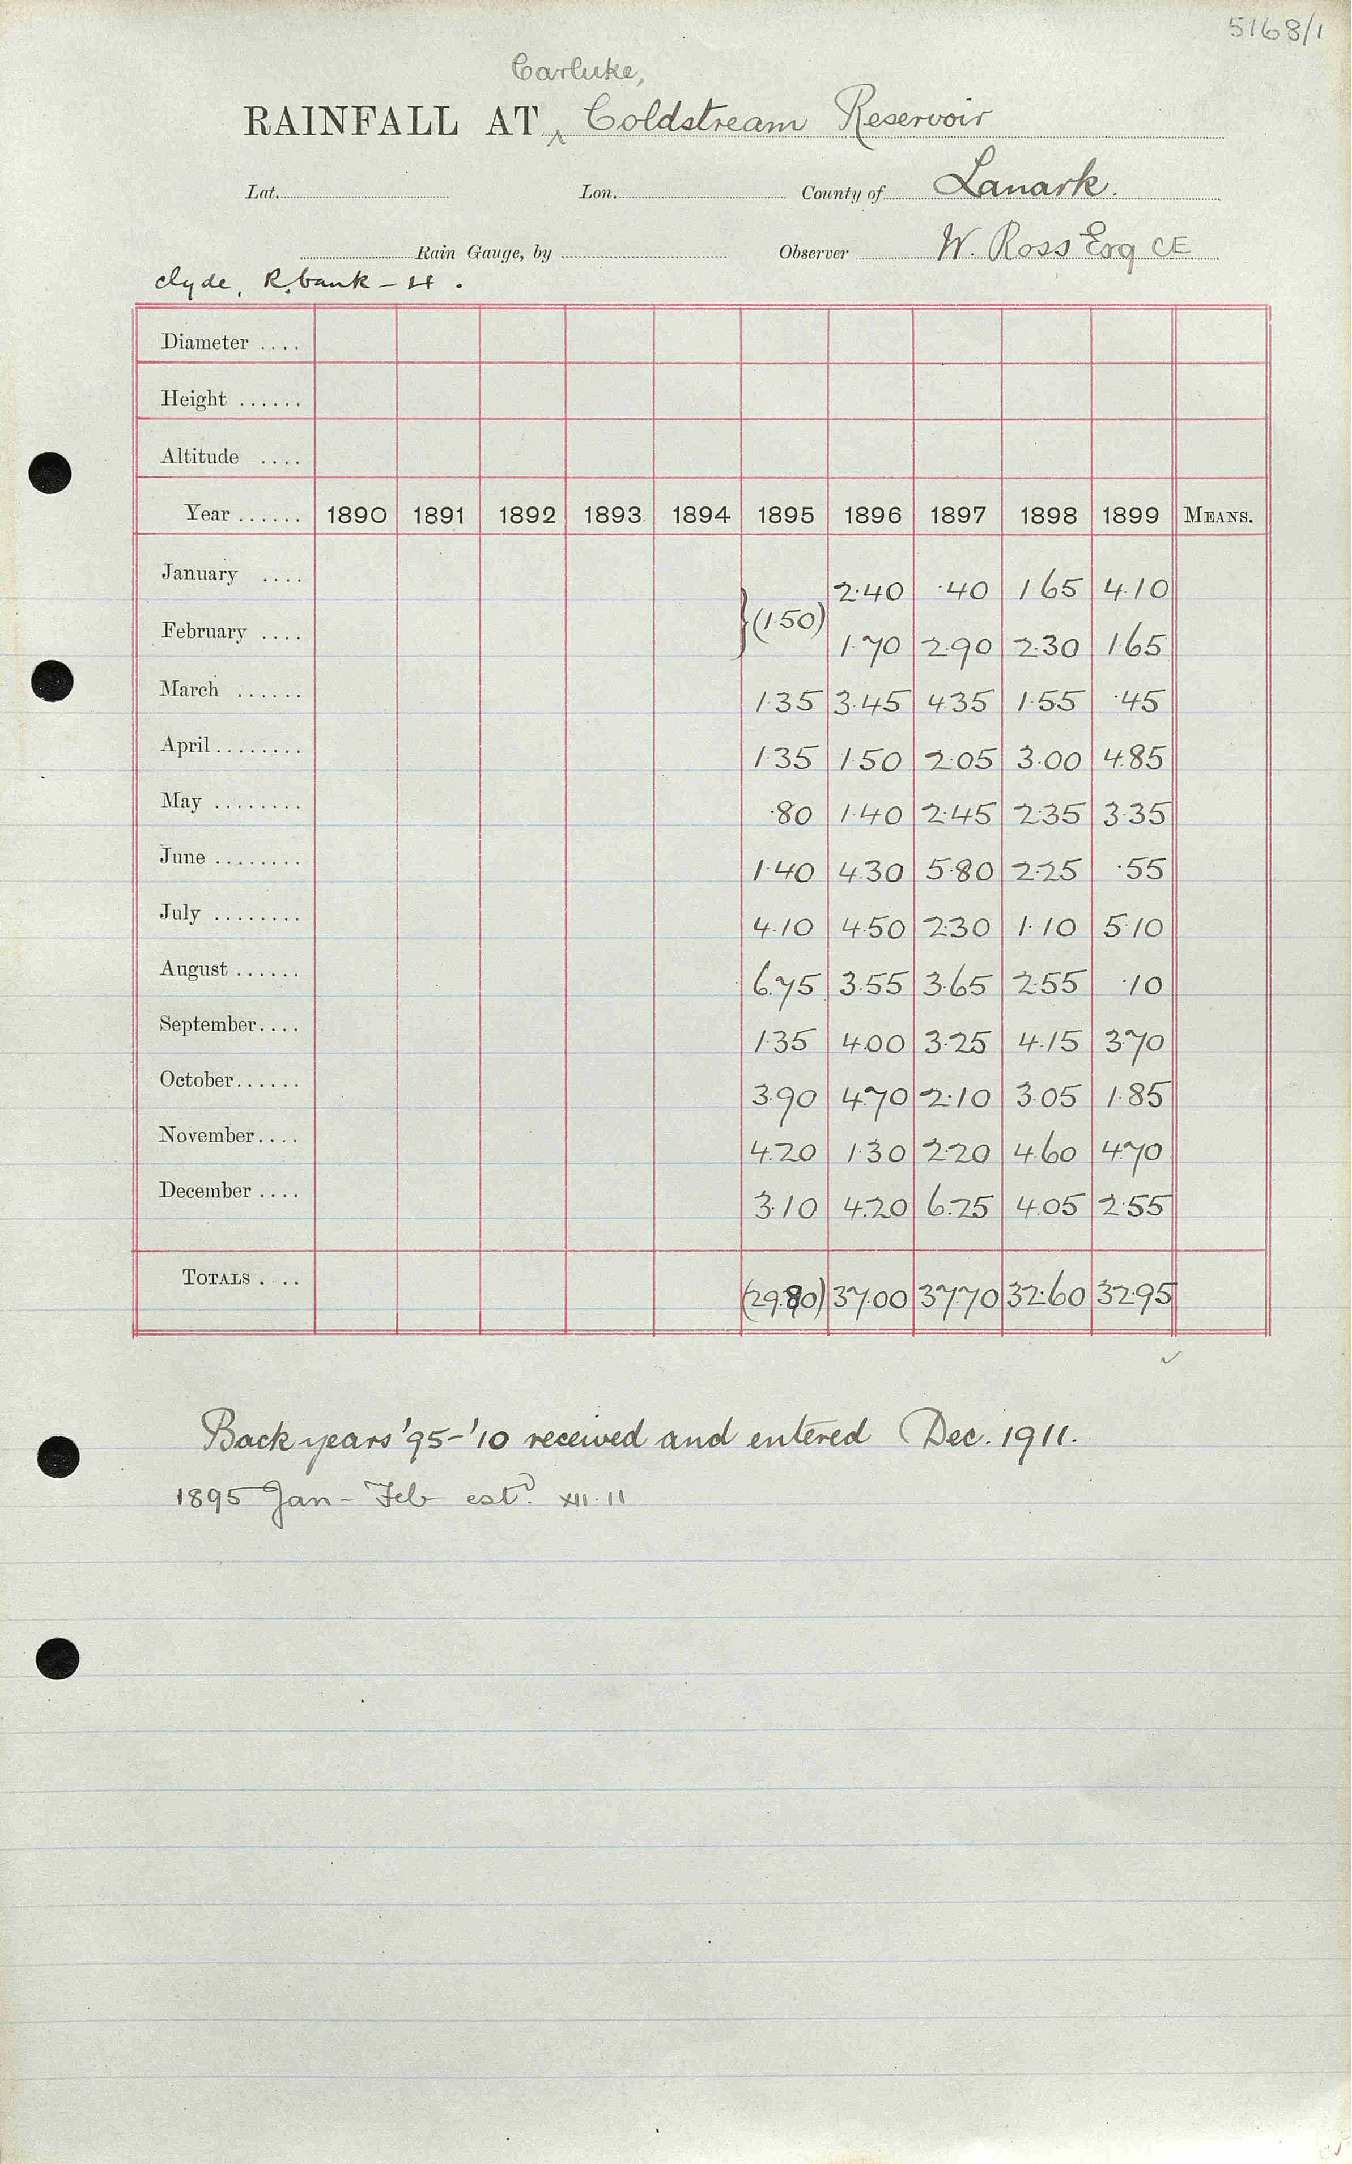 5168/1
Carluke,
RAINFALL AT ^ Coldstream Reservoir
Lat. Lon. County of Lanark.
Rain Gauge, by Observer W. Ross Esq CE
Clyde, R. bank - H.
Diameter ....
Height ......
Altitude ....
Year ...... 1890 1891 1892 1893 1894 1895 1896 1897 1898 1899 MEANS.
January .... 2.40 .40 1.65 4.10
} (1.50)
February .... 1.70 2.90 2.30 1.65
March ...... 1.35 3.45 4.35 1.55 .45
April........ 1.35 1.50 2.05 3.00 4.85
May ........ .80 1.40 2.45 2.35 3.35
June ........ 1.40 4.30 5.80 2.25 .55
July ........ 4.10 4.50 2.30 1.10 5.10
August ...... 6.75 3.55 3.65 2.55 .10
September.... 1.35 4.00 3.25 4.15 3.70
October...... 3.90 4.70 2.10 3.05 1.85
November.... 4.20 1.30 2.20 4.60 4.70
December .... 3.10 4.20 6.25 4.05 2.55
TOTALS .... (29.80) 37.00 37.70 32.60 32.95
Back years '95-'10 received and entered Dec. 1911.
1895 Jan - Feb estd. XII.11